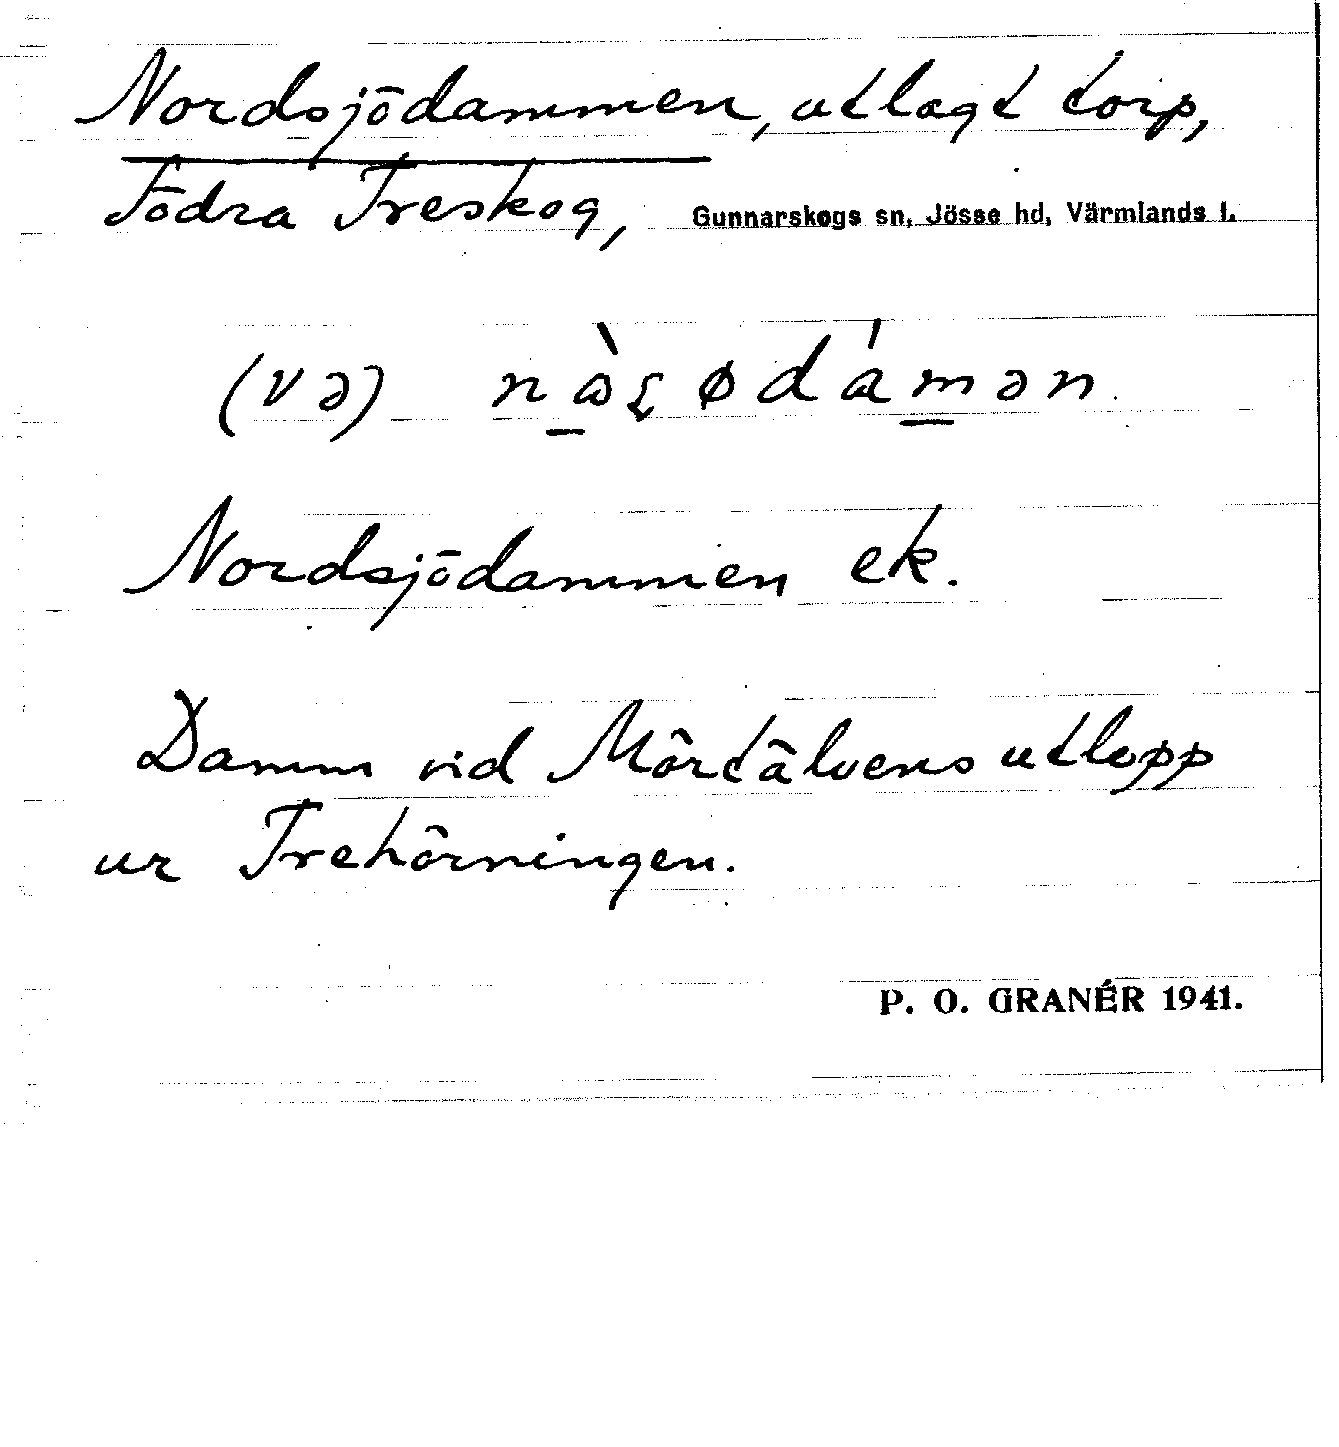 Nordsjödammen, utlagt torp,
Södra Treskog, Gunnarskogs sn, Jösse hd, Värmlands l.
(və) nɷ̀ʂødámən
Nordsjödammen ek.
Damm vid Mörtälvens utlopp
ur Trehörningen.
P. O. GRANÉR 1941.